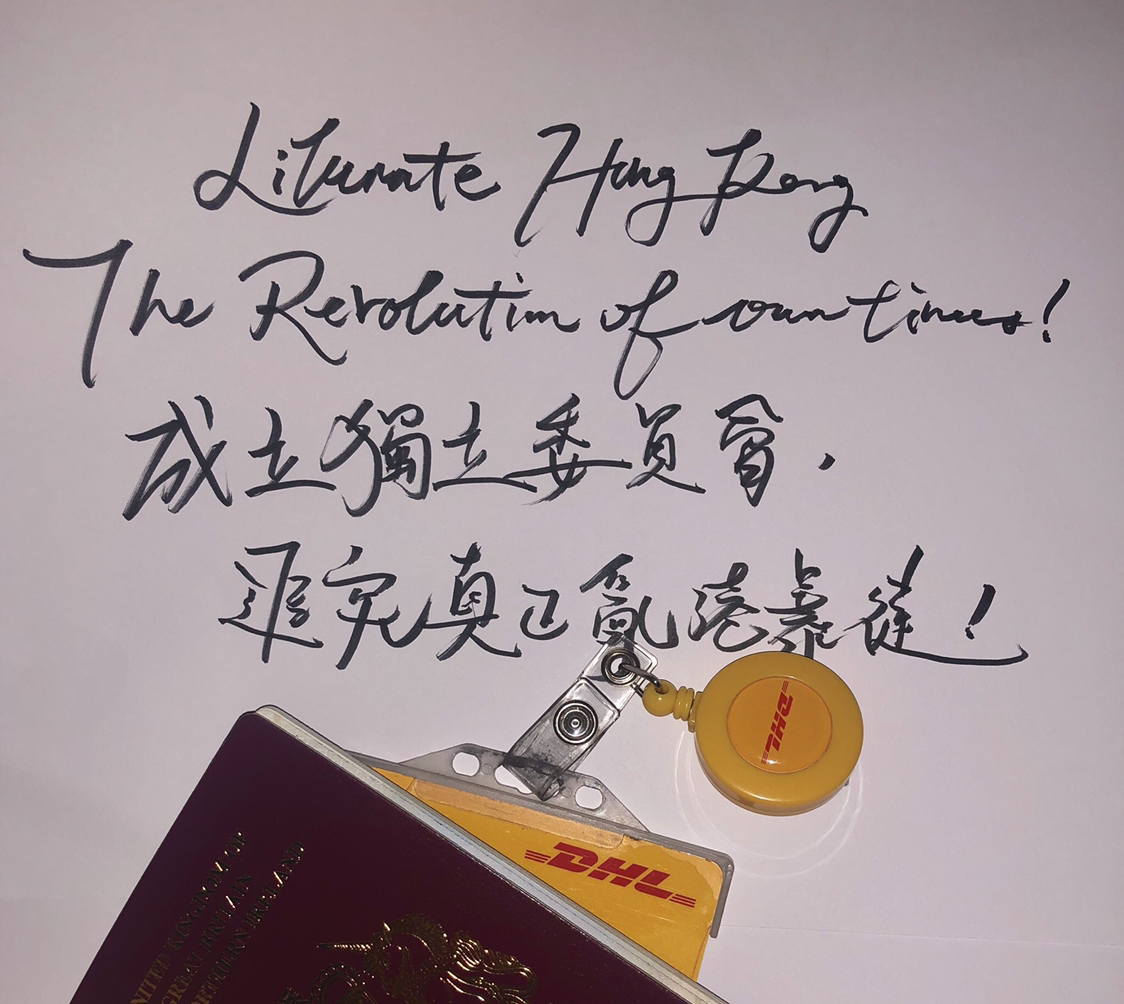 Liberate Hong Kong
The Revolution of our times!
成立獨立委員會，
追究真正亂港暴徒！
DHL
DHL
UNITED KINGDOM OF
GREAT BRITAIN
NORTHERN IRELAND